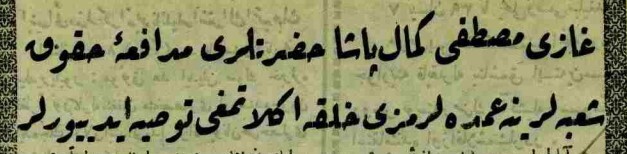 غازى مصطفى كمال پاشا حضرتلرى مدافعۀ حقوق
شعبه لرينه عمده لرمزى خلقه اكلاتمغى توصيه ايدييورلر